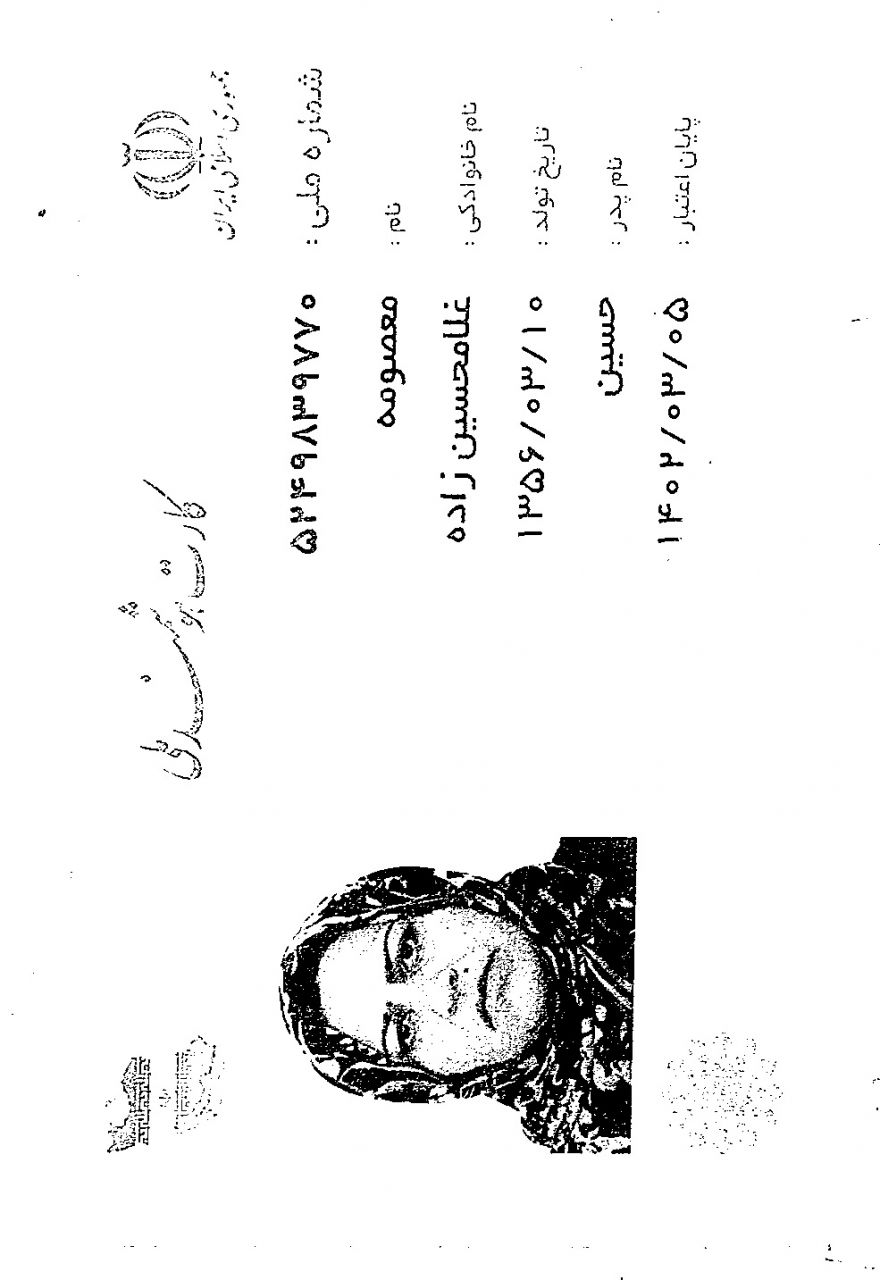 جمهوری اسلامی ایران
کارت هوشمند ملی
شماره ملی : ۵۲۴۹۸۳۹۷۷۰
نام : معصومه
نام خانوادگی : غلامحسین زاده
تاریخ تولد : ۱۳۵۶/۰۳/۱۰
نام پدر : حسین
پایان اعتبار : ۱۴۰۲/۰۳/۰۵